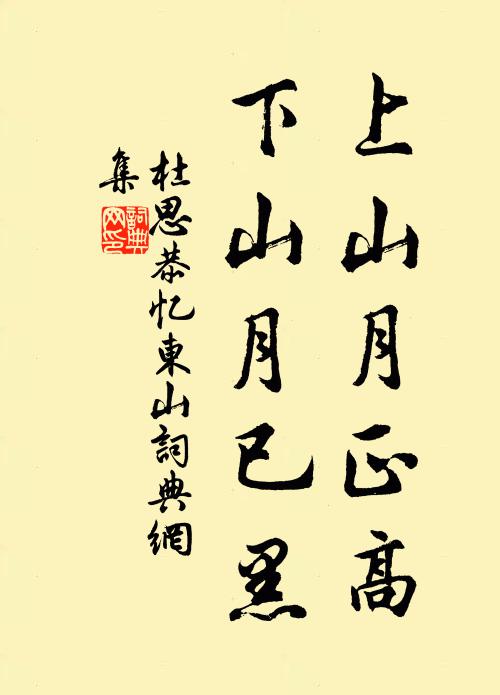 上山月正高
下山月已黑
杜思恭忆東山詞典網
集
詞典
网印